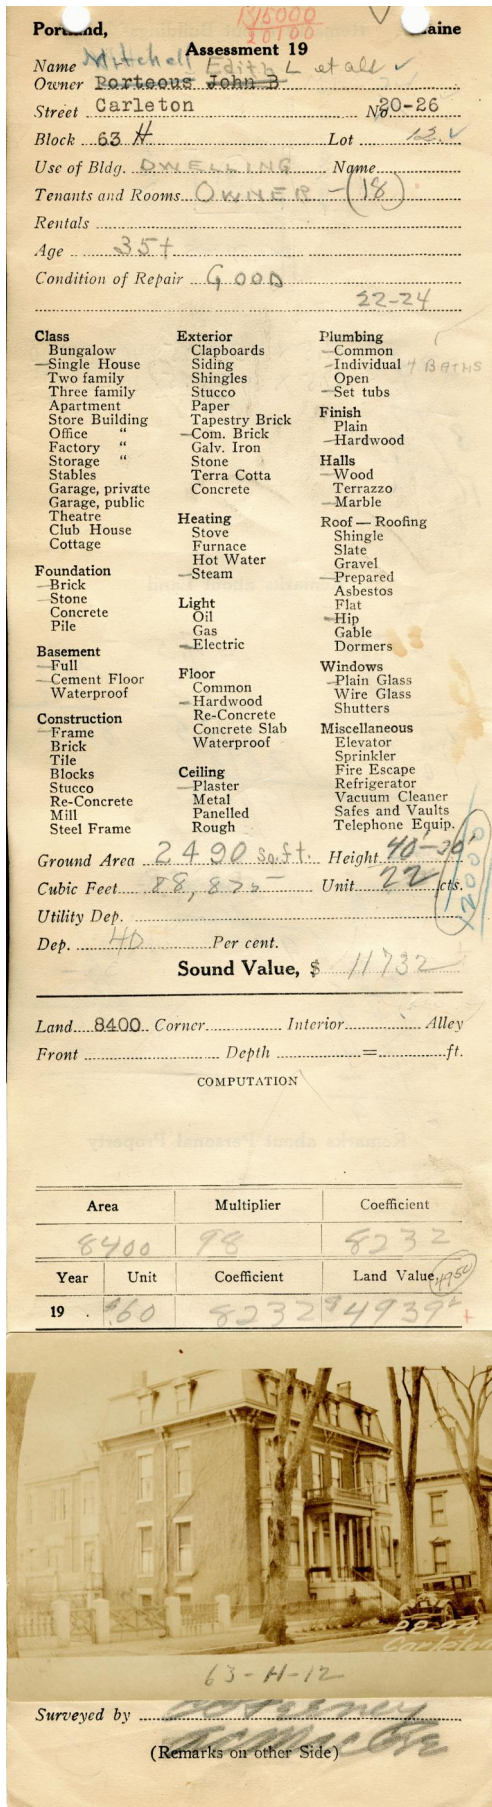 R15000
20100
Portland, Maine
Assessment 19
Name Mitchell Edith L et als ✓
Owner Porteous John B
Street Carleton No. 20-26
Block 63 H Lot 12 ✓
Use of Bldg. DWELLING Name
Tenants and Rooms OWNER - (18)
Rentals
Age 35+
Condition of Repair GOOD
22-24
Class
Bungalow
Single House
Two family
Three family
Apartment
Store Building
Office "
Factory "
Storage "
Stables
Garage, private
Garage, public
Theatre
Club House
Cottage
Foundation
Brick
Stone
Concrete
Pile
Basement
Full
Cement Floor
Waterproof
Construction
Frame
Brick
Tile
Blocks
Stucco
Re-Concrete
Mill
Steel Frame
Exterior
Clapboards
Siding
Shingles
Stucco
Paper
Tapestry Brick
Com. Brick
Galv. Iron
Stone
Terra Cotta
Concrete
Heating
Stove
Furnace
Hot Water
Steam
Light
Oil
Gas
Electric
Floor
Common
Hardwood
Re-Concrete
Concrete Slab
Waterproof
Ceiling
Plaster
Metal
Panelled
Rough
Plumbing
Common
Individual 4 BATHS
Open
Set tubs
Finish
Plain
Hardwood
Halls
Wood
Terrazzo
Marble
Roof — Roofing
Shingle
Slate
Gravel
Prepared
Asbestos
Flat
Hip
Gable
Dormers
Windows
Plain Glass
Wire Glass
Shutters
Miscellaneous
Elevator
Sprinkler
Fire Escape
Refrigerator
Vacuum Cleaner
Safes and Vaults
Telephone Equip.
Ground Area 2490 sq.ft. Height 40'-20'
Cubic Feet 88,875 Unit 22 cts.
12000
Utility Dep.
Dep. 40 Per cent.
Sound Value, $ 11732
Land 8400 Corner Interior Alley
Front Depth = ft.
COMPUTATION
Area Multiplier Coefficient
8400 98 8232
Year Unit Coefficient Land Value 4950
19 . $.60 8232 $4939
63-H-12
Surveyed by
(Remarks on other Side)